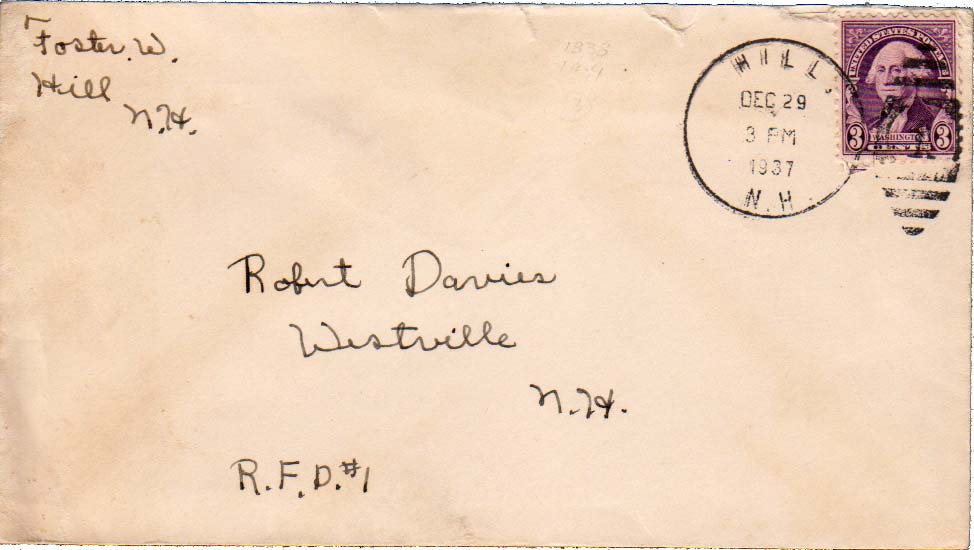 Foster. W.
Hill
N.H.
HILL,
DEC 29
3 PM
1937
N.H.
UNITED STATES POSTAGE
3 WASHINGTON 3
CENTS
Robert Davies
Westville
N.H.
R.F.D.#1